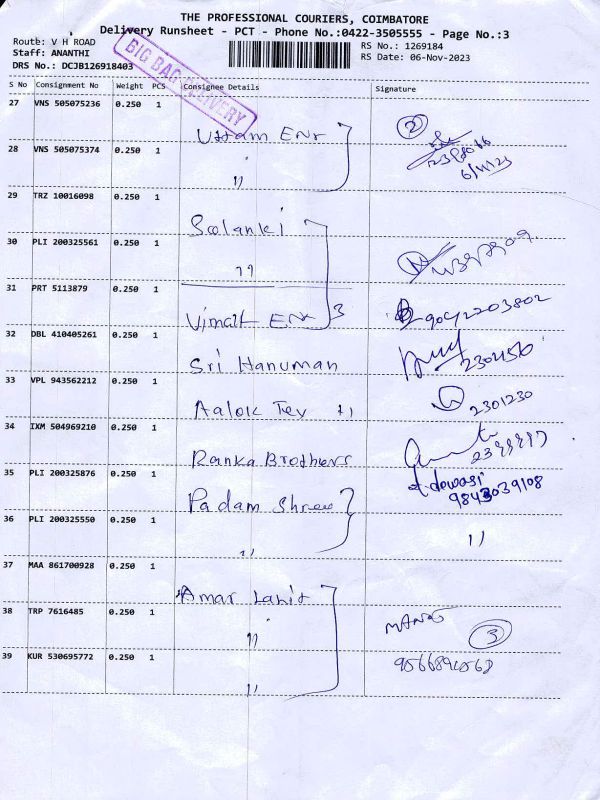 THE PROFESSIONAL COURIERS, COIMBATORE
Delivery Runsheet - PCT - Phone No.:0422-3505555 - Page No.:3
Route: V H ROAD
Staff: ANANTHI
DRS No.: DCJB126918403
RS No.: 1269184
RS Date: 06-Nov-2023
BIG BAG DELIVERY
S No Consignment No Weight PCS Consignee Details Signature
27 VNS 505075236 0.250 1 Uttam Enr 2
28 VNS 505075374 0.250 1 "
6/11/23
29 TRZ 10016098 0.250 1 Solanki
30 PLI 200325561 0.250 1 "
31 PRT 5113879 0.250 1 Vimalt Enr 3 9042203802
32 DBL 410405261 0.250 1 Sri Hanuman
33 VPL 943562212 0.250 1 Aalok Tev 11 2301230
34 IXM 504969210 0.250 1 Ranka Brothers
35 PLI 200325876 0.250 1 Padam Shree dewasi
9843039108
36 PLI 200325550 0.250 1 " "
37 MAA 861700928 0.250 1 Amar Lahit
38 TRP 7616485 0.250 1 " 3
39 KUR 530695772 0.250 1 "